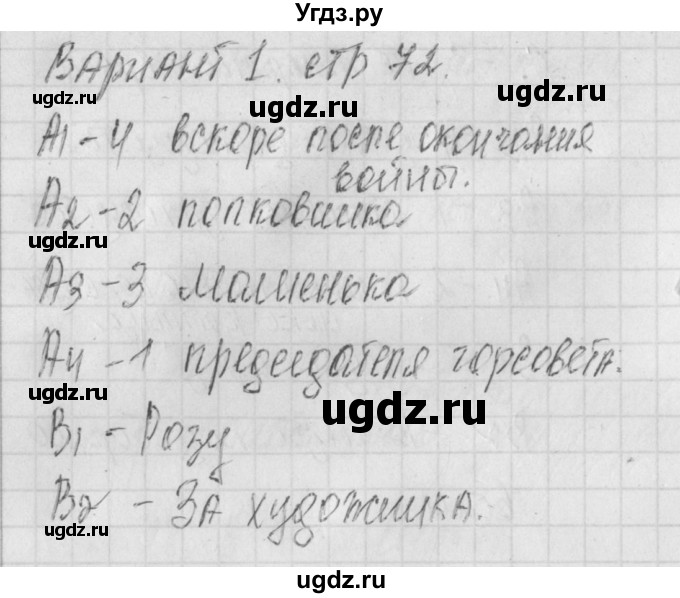 Угдз.ру
Вариант 1. стр 72.
ugdz.ru ugdz.ru
А1 - 4 вскоре после окончания
войны.
А2 - 2 полковника
ugdz.ru ugdz.ru
А3 - 3 Машенька
А4 - 1 председателя горсовета.
ugdz.ru ugdz.ru
В1 - Розу
В2 - За художника.
ugdz.ru ugdz.ru
ugdz.ru